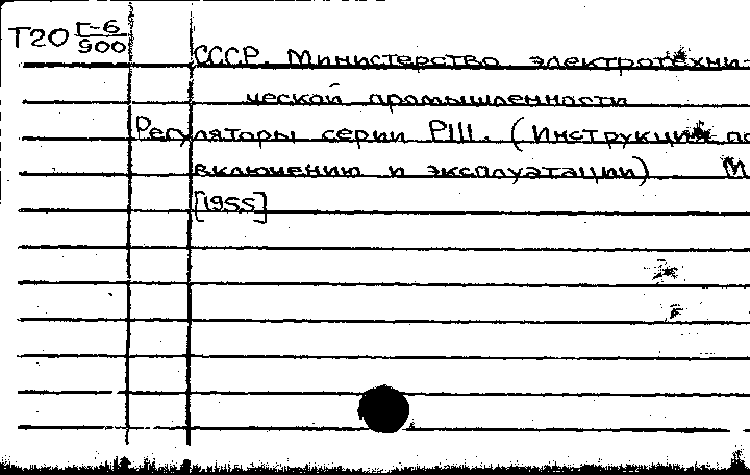 Т20 Г-6
900
СССР. Министерство электротехни-
ческой промышленности
Регуляторы серии РІІІ. (Инструкция по
включению и эксплуатации) М
[1955]